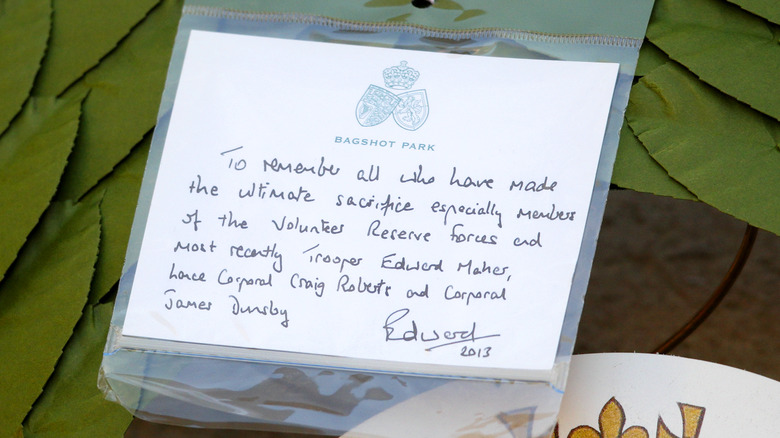 BAGSHOT PARK
To remember all who have made
the ultimate sacrifice especially members
of the Volunteer Reserve forces and
most recently Trooper Edward Maher,
Lance Corporal Craig Roberts and Corporal
James Dunsby
Edward
2013